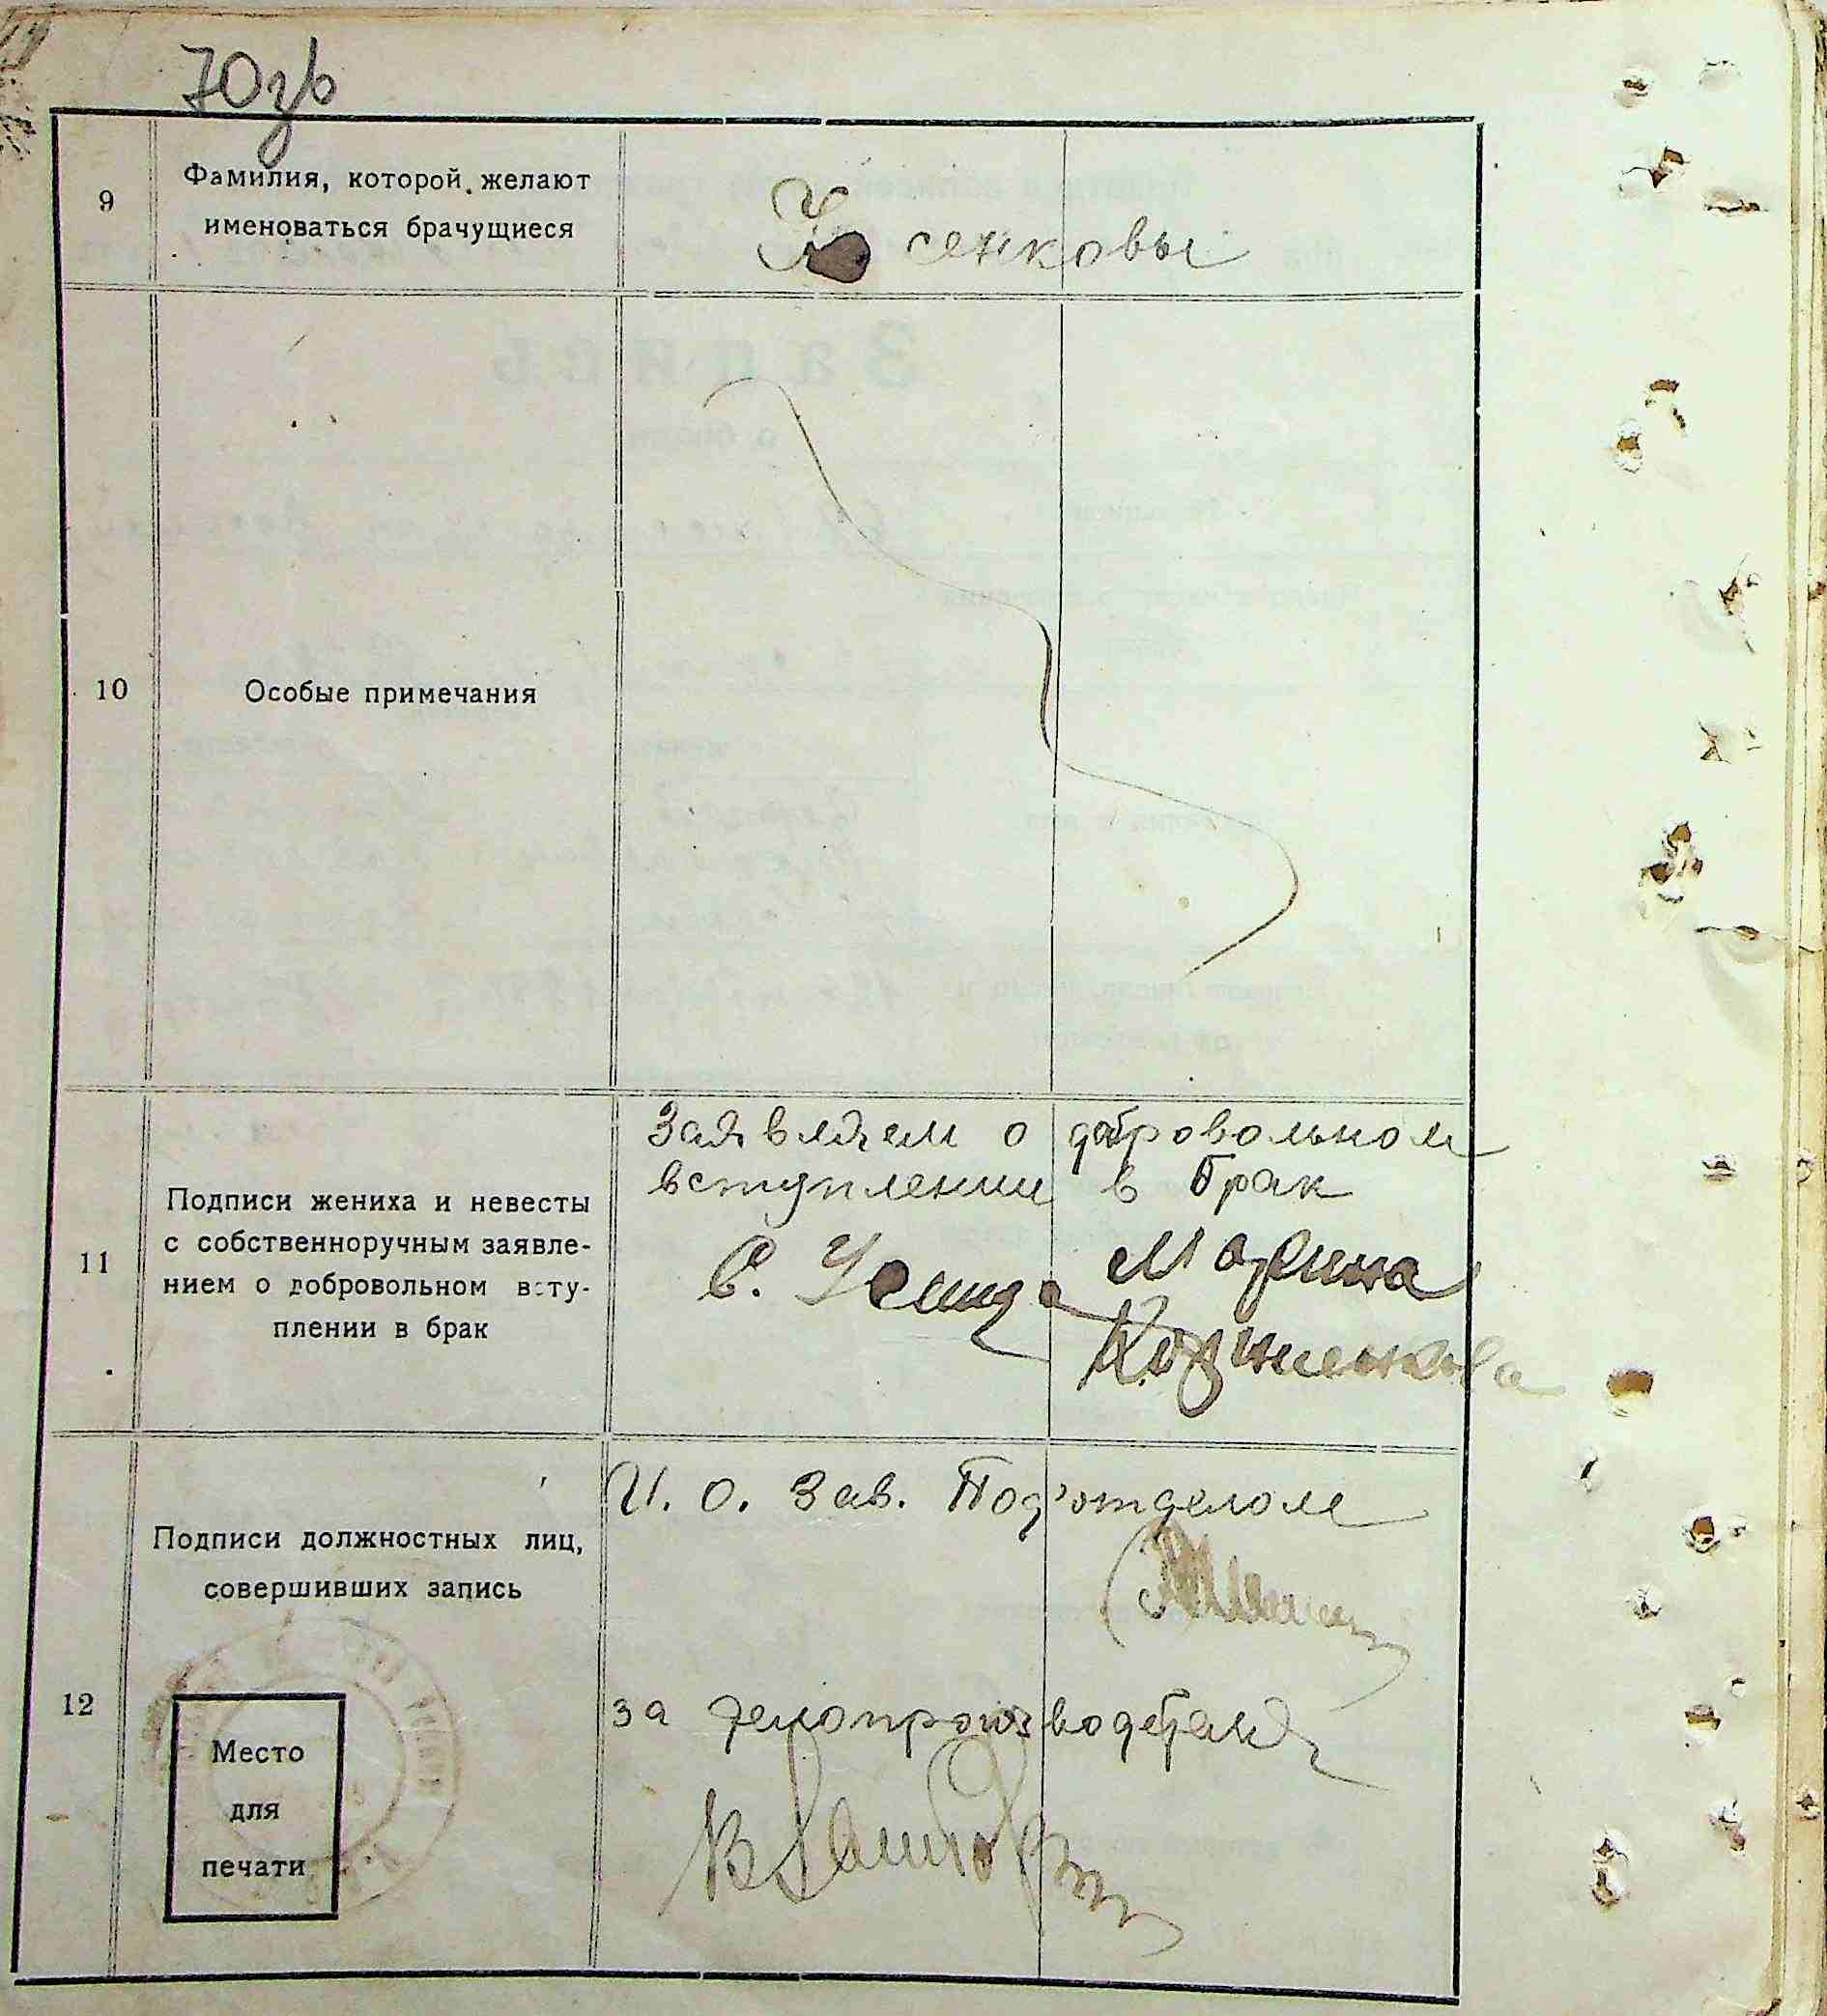 70зв
9
Фамилия, которой желают
именоваться брачущиеся
сенковы
10
Особые примечания
11
Подписи жениха и невесты
с собственноручным заявле-
нием о добровольном всту-
плении в брак
Заявляем о добровольном
вступлении в брак
С.
Марина
12
Подписи должностных лиц,
совершивших запись
И. О. Зав. Под'отделом
за делопроизводителя
Место
для
печати